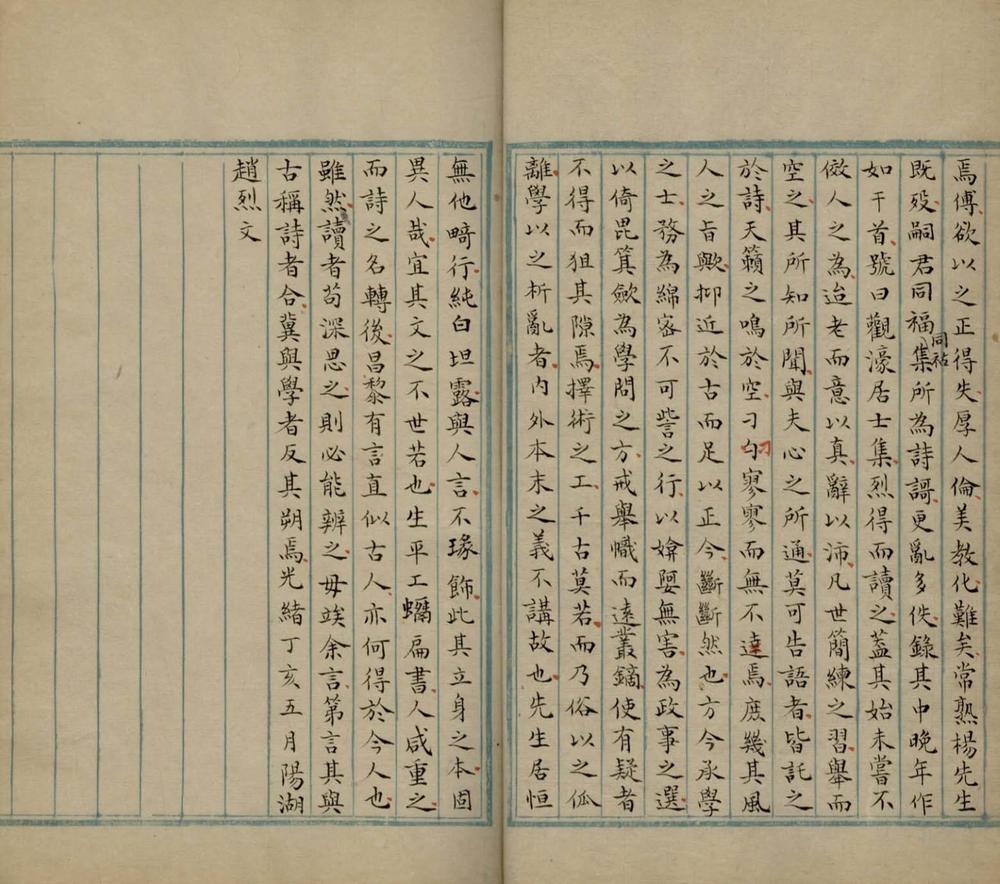 焉傅欲以之正得失厚人倫美教化難矣常熟楊先生
既歿嗣君同福同祜集所為詩謌更亂多佚錄其中晚年作
如干首號曰觀濠居士集烈得而讀之蓋其始未嘗不
傚人之為迨老而意以真辭以沛凡世簡練之習舉而
空之其所知所聞與夫心之所通莫可告語者皆託之
於詩天籟之鳴於空刁勹刁寥寥而無不達焉庶幾其風
人之旨歟抑近於古而足以正今斷斷然也方今承學
之士務為綿密不可訾之行以媕娿無害為政事之選
以倚毘箕歛為學問之方戒舉幟而遠叢鏑使有疑者
不得而狙其隙焉擇術之工千古莫若而乃俗以之仳
離學以之析亂者內外本末之義不講故也先生居恒
無他畸行純白坦露與人言不瑑飾此其立身之本固
異人哉宜其文之不世若也生平工蠵扁書人咸重之
而詩之名轉後昌黎有言直似古人亦何得於今人也
雖然讀者苟深思之則必能辨之毋竢余言第言其與
古稱詩者合冀與學者反其朔焉光緒丁亥五月陽湖
趙烈文